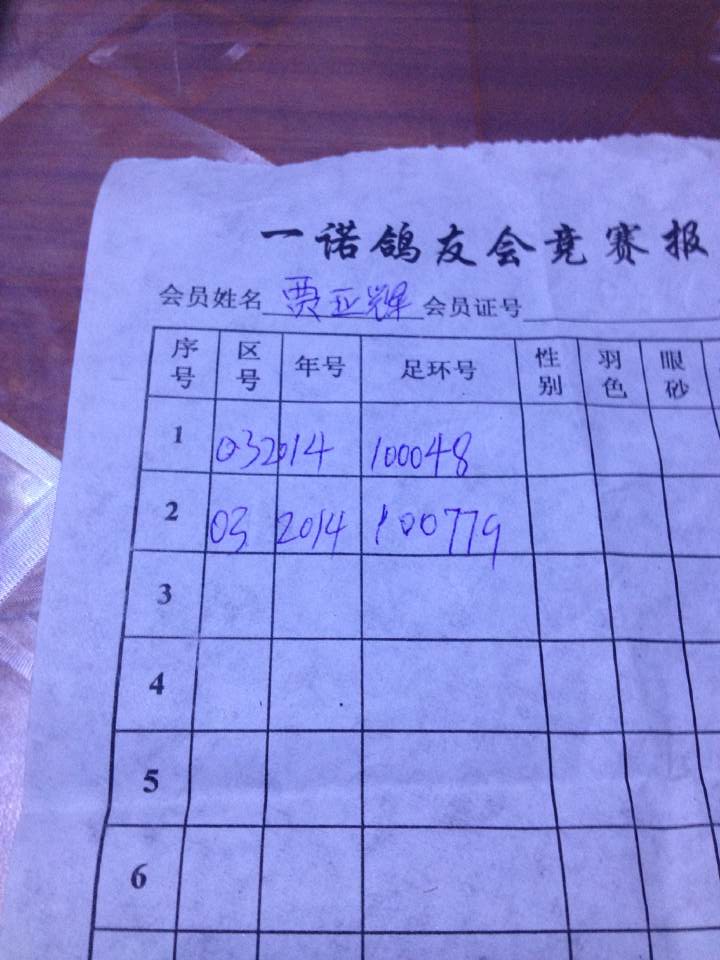 一诺鸽友会竞赛报
会员姓名 贾亚辉 会员证号
序号 区号 年号 足环号 性别 羽色 眼砂
1 03 2014 100048
2 03 2014 100779
3
4
5
6